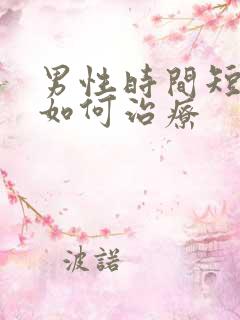 男性時間短
如何治療
波諾